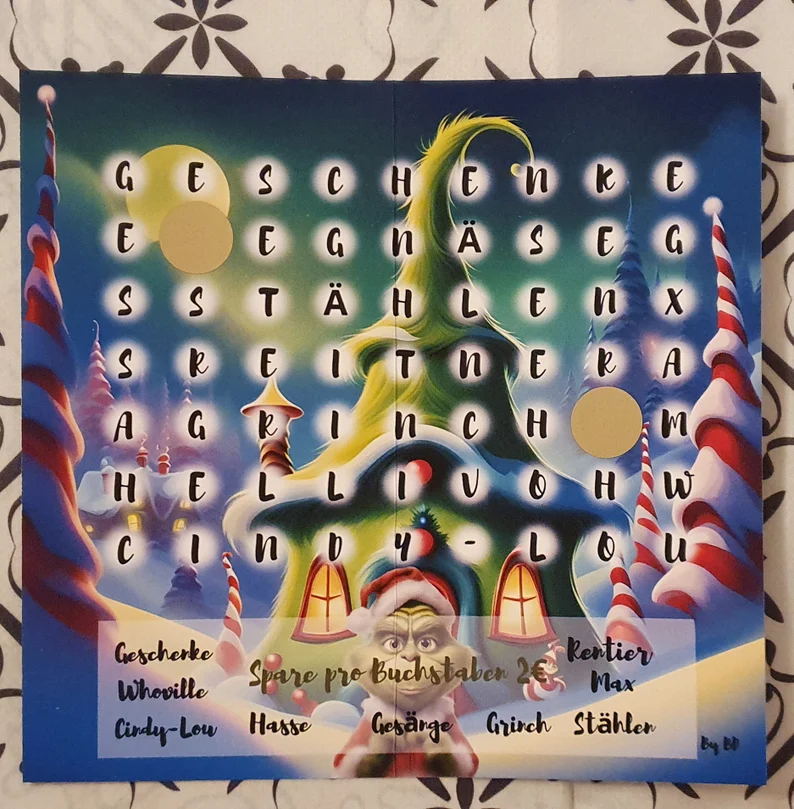 G E S C H E N K E
E E G N Ä S E G
S S T Ä H L E N X
S R E I T N E R A
A G R I N C H M
H E L L I V O H W
C I N D Y - L O U
Geschenke Rentier
Spare pro Buchstaben 2€
Whoville Max
Cindy-Lou Hasse Gesänge Grinch Stählen
By BD